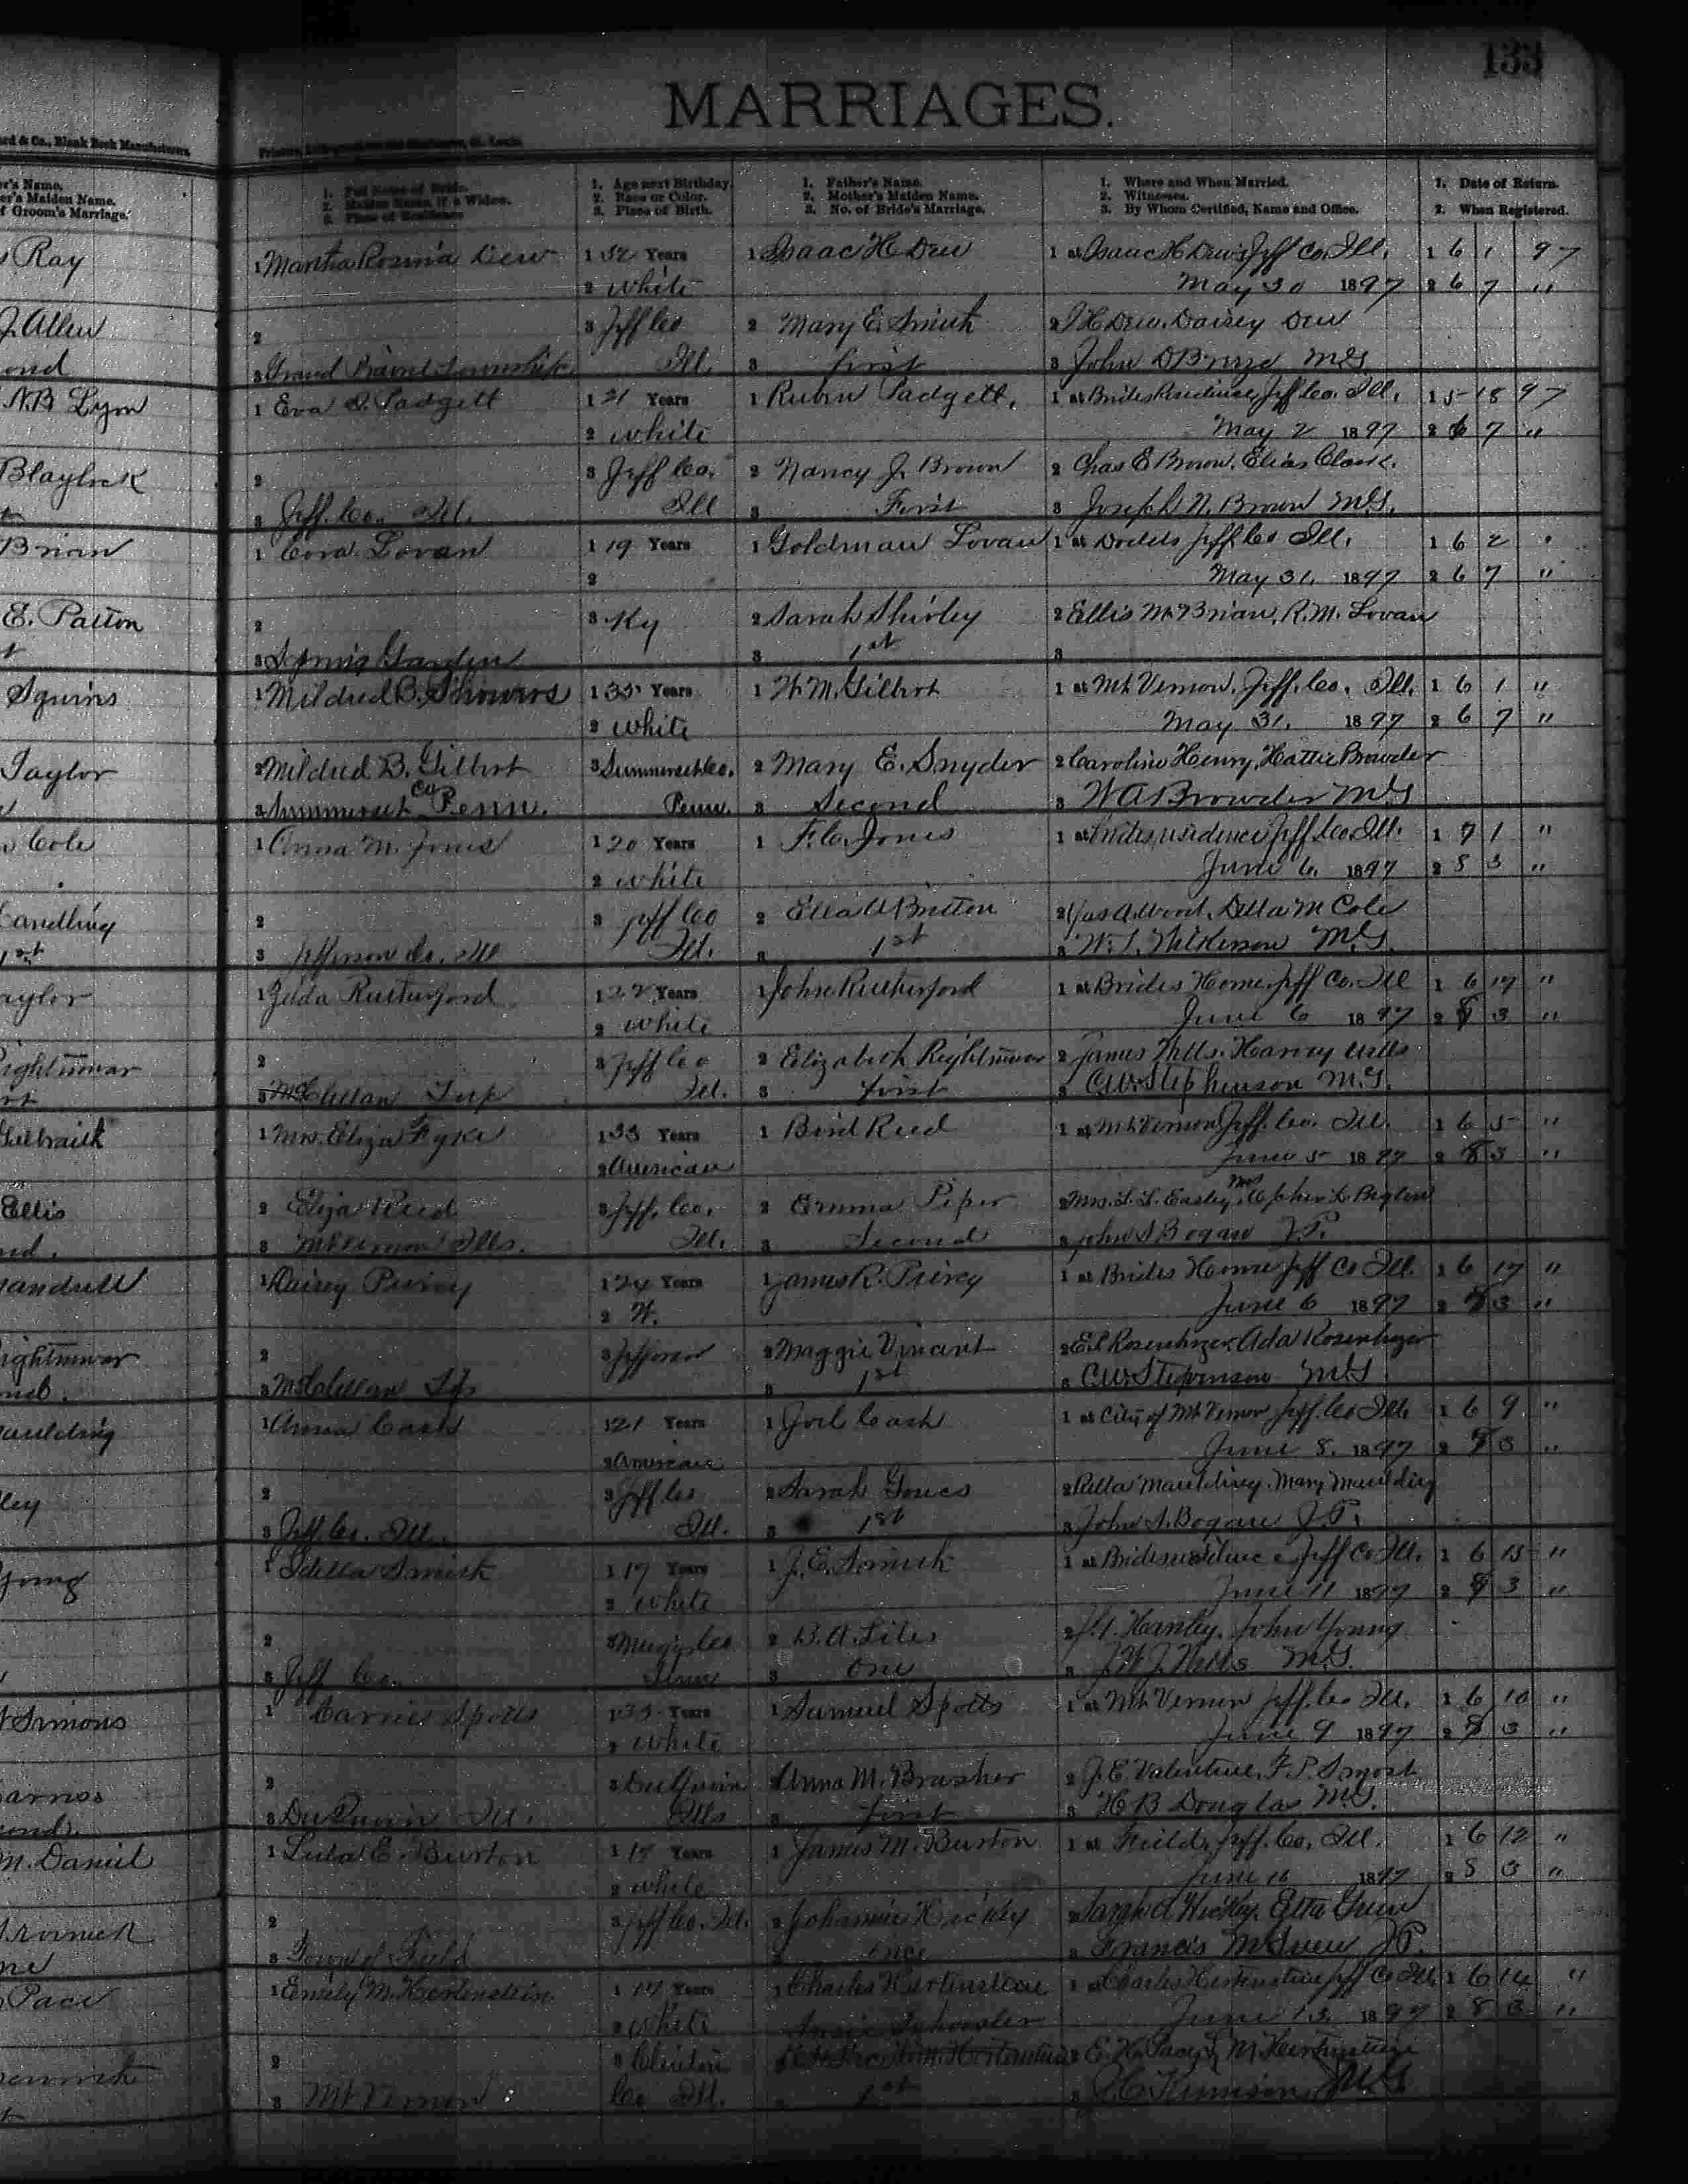 133
MARRIAGES.
rd & Co., Blank Book Manufacturers
er's Name.
er's Maiden Name.
f Groom's Marriage.
1. Full Name of Bride.
2. Maiden Name, if a Widow.
3. Place of Residence
1. Age next Birthday.
2. Race or Color.
3. Place of Birth.
1. Father's Name.
2. Mother's Maiden Name.
3. No. of Bride's Marriage.
1. Where and When Married.
2. Witnesses.
3. By Whom Certified, Name and Office.
1. Date of Return.
2. When Registered.
Ray
1 Martha Rosina Dew 1 Years 1 Isaac H Dew 1 at Isaac H Dew's Jeff Co. Ill. 1 6 1 97
2 white May 30 1897 2 6 7 "
J. Allen
2 3 Jeff Co 2 Mary E. Smith 2 J H Dew. Daisey Dew
ond
3 Grand Township Ill. 3 first 3 John D M.G.
N.B Lyon
1 Eva Padgett 1 21 Years 1 Rubin Padgett. 1 at Brides Residence Jeff Co. Ill. 1 5 18 97
2 white May 2 1897 2 6 7 "
Blaylock
2 3 Jeff Co. 2 Nancy J. Brown 2 Chas E Brown. Elias Clark.
3 Jeff. Co. Ill. Ill 3 First 3 Joseph N. Brown M.G.
Brian
1 Cora Lovan 1 19 Years 1 Goldman Lovan 1 at Dodds Jeff Co Ill. 1 6 2 "
2 May 31. 1897 2 6 7 "
E. Patton
2 3 Ky 2 Sarah Shirley 2 Ellis McBrian, R.M. Lovan
3 Spring Garden 3 1st 3
Squires
1 Mildred B. Showers 1 35 Years 1 W.M. Gilbert 1 at Mt Vernon, Jeff. Co. Ill. 1 6 1 "
2 white May 31. 1897 2 6 7 "
Taylor
2 Mildred B. Gilbert 3 Summerset Co. 2 Mary E. Snyder 2 Caroline Henry, Hattie Browder
3 Summerset Co Penn. Penn. 3 Second 3 W A Browder M.G
Cole
1 Anna M. Jones 1 20 Years 1 F.C. Jones 1 at residence Jeff. Co. Ill. 1 7 1 "
2 white June 6. 1897 2 8 3 "
Candling
2 3 Jeff Co 2 Ella A Britton 2 Jas A. Wood, Della M Cole
1st
3 Jefferson Co. Ill Ill. 3 1st 3 W. S. Wilkerson M.G.
aylor
1 Rutherford 1 22 Years 1 John Rutherford 1 at Brides Home Jeff Co. Ill 1 6 17 "
2 white June 6 1897 2 8 3 "
ightnowar
2 3 Jeff Co 2 Elizabeth Rightnowar 2 James Wells. Harvey Wells
3 McClellan Twp Ill. 3 first 3 C.W. Stephenson M.G.
Galbraith
1 Mrs. Eliza Fyke 1 33 Years 1 Bird Reed 1 at Mt Vernon Jeff. Co. Ill. 1 6 5 "
2 American June 5 1897 2 8 3 "
Ellis
2 Eliza Reed 3 Jeff. Co. 2 Emma Piper 2 Mrs. L. L. Easley, Mrs
nd.
3 Mt Vernon Ills. Ill. 3 Second 3 John S Bogan J.P.
andrell
1 Daisey Piercy 1 24 Years 1 James R. Piercy 1 at Brides Home Jeff Co Ill. 1 6 17 "
2 W. June 6 1897 2 8 3 "
ightnowar
2 3 Jefferson 2 Maggie Vincent 2 Ada
3 McClellan 3 1st 3 C.W. Stepenson M.G
aulding
1 Anna Cash 1 21 Years 1 Joel Cash 1 at City of Mt Vernon Jeff. Co Ill. 1 6 9 "
2 American June 8. 1897 2 8 3 "
ley
2 3 Jeff Co 2 Sarah 2 Maulding. Mary Maulding
3 Jeff. Co. Ill. Ill. 3 1st 3 John S. Bogan J.P.
Young
1 Smith 1 17 Years 1 J.E. Smith 1 at Brides residence Jeff Co Ill. 1 6 15 "
2 white June 11 1897 2 8 3 "
2 3 Meigs Co 2 B.A. Liles 2 Hanley. John Young
3 Jeff Co. Tenn 3 one 3 M.G.
Simons
1 Carrie Spotts 1 33 Years 1 Samuel Spotts 1 at Mt Vernon Jeff. Co Ill. 1 6 10 "
2 white June 9 1897 2 8 3 "
arnos
2 3 DuQuoin 2 Anna M. Brasher 2 J.E. Valentine, F.P.
3 DuQuoin Ill. Ills 3 first 3 H B Douglas M.G.
M. Daniel
1 Lula E. Burton 1 18 Years 1 James M. Burton 1 at Field, Jeff. Co. Ill. 1 6 12 "
2 white June 1897 2 8 3 "
2 3 Jeff Co. Ill. 2 Johannie Hickey 2 Sarah A Hickey. Etta Green
3 Town of Field 3 once 3 Francis J.P.
Pace
1 Emily M. Hertenstein 1 Years 1 Charles Hertenstein 1 at Charles Hertenstein Jeff Co Ill. 1 6 14 "
2 white June 13 1897 2 8 3 "
2 3 Clinton 2 E. H. Pace
3 Mt Vernon Co Ill. 1st 3 M.G